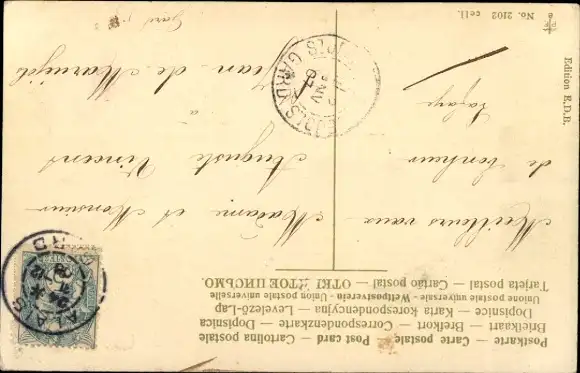 Postkarte — Carte postale — Post card — Cartolina postale
Briefkaart — Brefkort — Correspondenzkarte — Dopisnica
Dopisnice — Karta korespondencyjna — Levelező-Lap
Union postale universelle - Weltpostverein - Unione postale universale
Tarjeta postal — Cartão postal — ОТКРЫТОЕ ПИСЬМО.
Meilleurs vœux
de bonheur
Lafaye
Madame et Monsieur
Auguste Vincent
à
Jean-de-Maruéjols
Gard
ALAIS
GARD
Edition E.D.B.
No. 2102 cell.